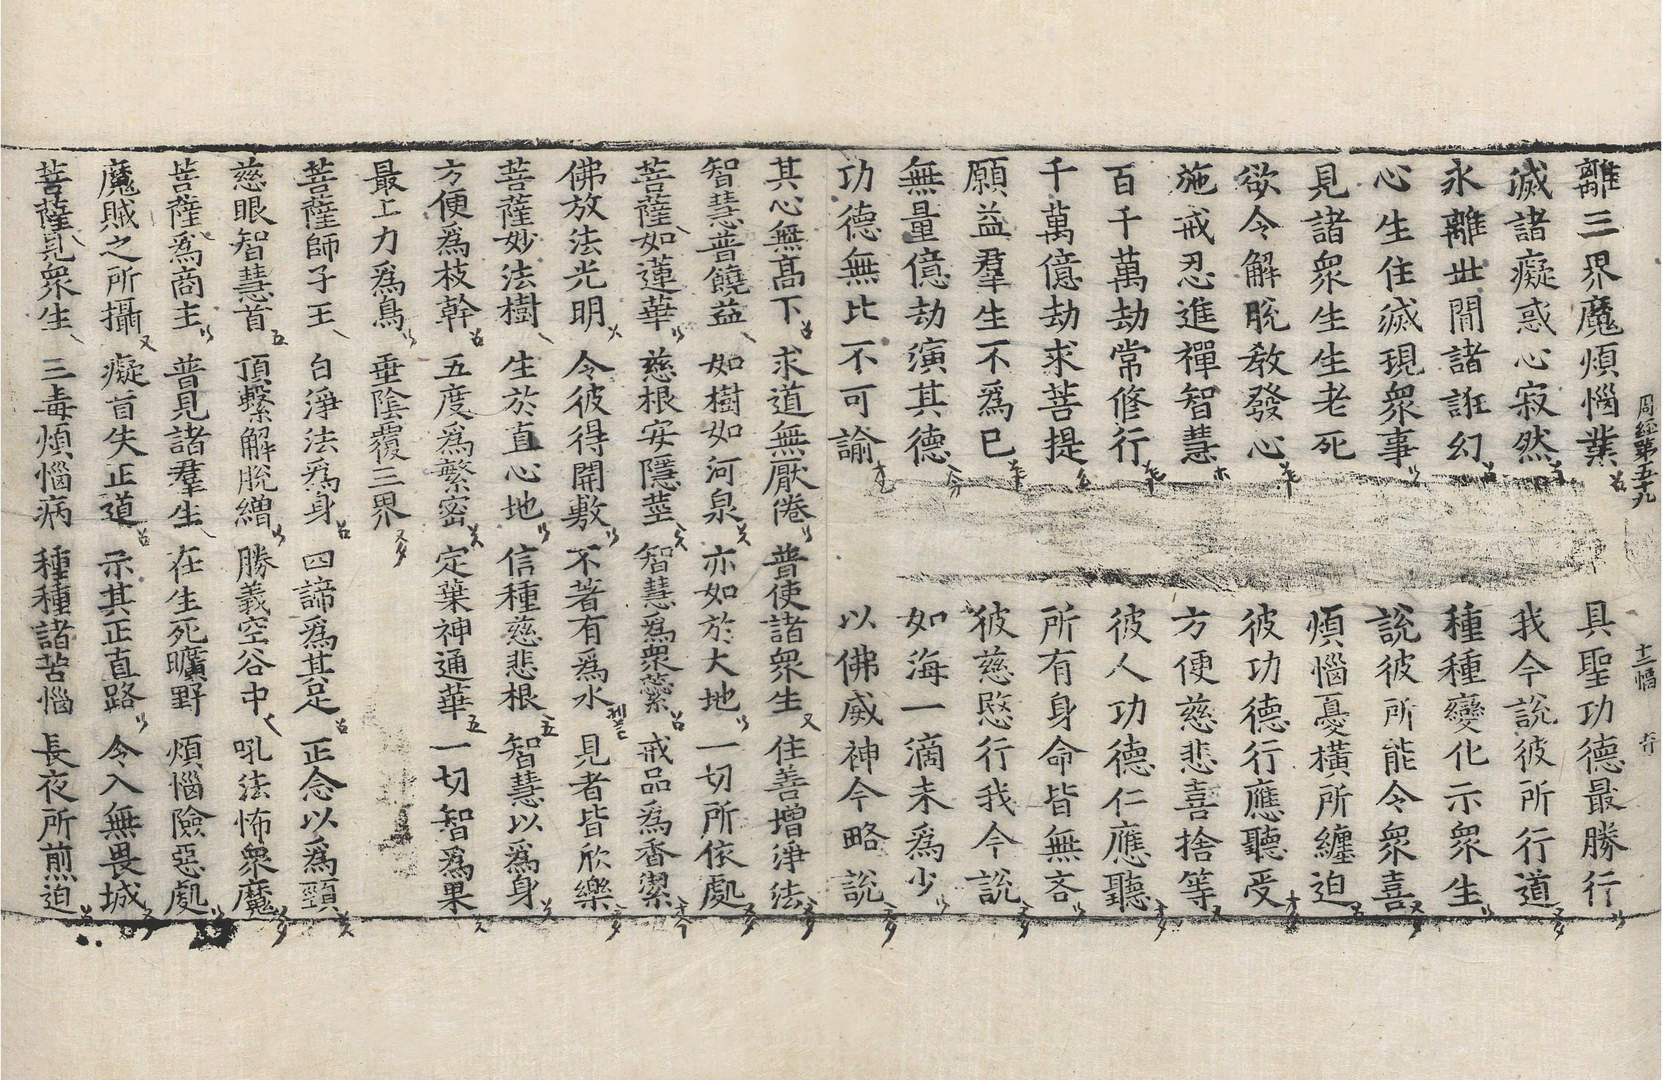 周經第五十九 十二幅
離三界魔煩惱業 具聖功德最勝行
滅諸癡惑心寂然 我今說彼所行道
永離世間諸誑幻 種種變化示衆生
心生住滅現衆事 說彼所能令衆喜
見諸衆生生老死 煩惱憂橫所纏迫
欲令解脫敎發心 彼功德行應聽受
施戒忍進禪智慧 方便慈悲喜捨等
百千萬劫常修行 彼人功德仁應聽
千萬億劫求菩提 所有身命皆無吝
願益羣生不爲已 彼慈愍行我今說
無量億劫演其德 如海一滴未爲少
功德無比不可諭 以佛威神今略說
其心無髙下 求道無厭倦 普使諸衆生 住善增淨法
智慧普饒益 如樹如河泉 亦如於大地 一切所依處
菩薩如蓮華 慈根安隱莖 智慧爲衆蘂 戒品爲香潔
佛放法光明 令彼得開敷 不著有爲水 見者皆欣樂
菩薩妙法樹 生於直心地 信種慈悲根 智慧以爲身
方便爲枝幹 五度爲繁密 定葉神通華 一切智爲果
最上力爲鳥 垂陰覆三界
菩薩師子王 白淨法爲身 四諦爲其足 正念以爲頸
慈眼智慧首 頂繫解脫繒 勝義空谷中 吼法怖衆魔
菩薩爲商主 普見諸羣生 在生死曠野 煩惱險惡處
魔賊之所攝 癡盲失正道 示其正直路 令入無畏城
菩薩見衆生 三毒煩惱病 種種諸苦惱 長夜所煎迫